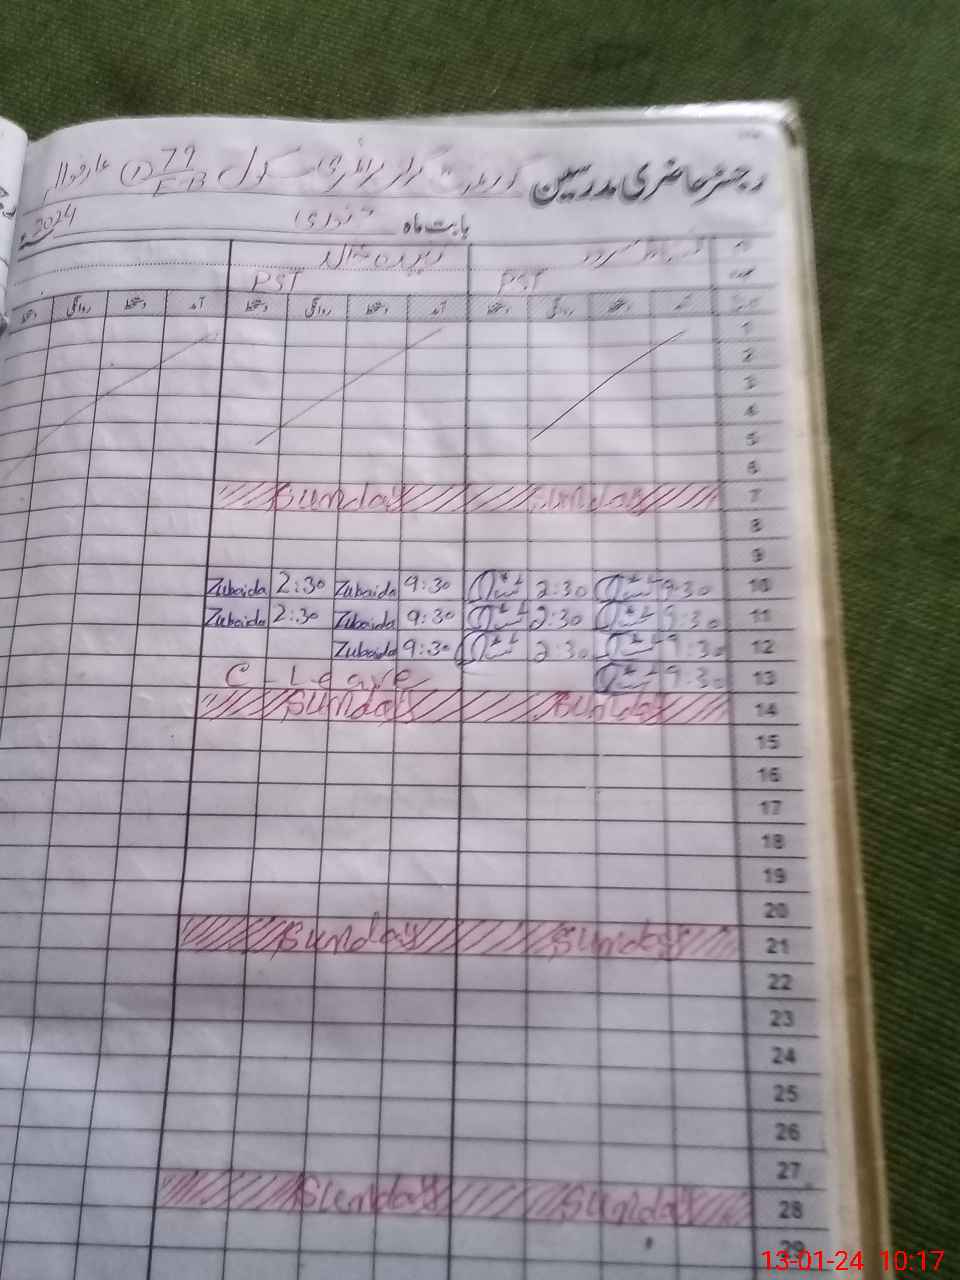 رجسٹر حاضری مدرسین گورنمنٹ گرلز پرائمری سکول 79/EB عارفوالا
بابت ماہ جنوری 2024
PST PST
آمد دستخط روانگی دستخط آمد دستخط روانگی دستخط آمد دستخط روانگی دستخط
1
2
3
4
5
6
7 Sunday Sunday
8
9
10 9:30 2:30 9:30 Zubaida 2:30 Zubaida
11 9:30 2:30 9:30 Zubaida 2:30 Zubaida
12 9:30 2:30 9:30 Zubaida
13 9:30 C-Leave
14 Sunday Sunday
15
16
17
18
19
20
21 Sunday Sunday
22
23
24
25
26
27
28 Sunday Sunday
29
13-01-24 10:17